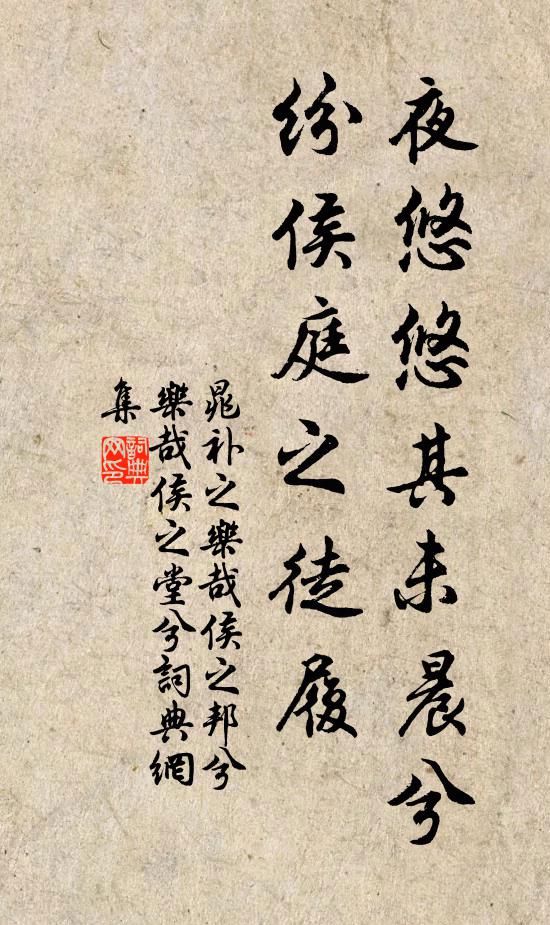 夜悠悠其未晨兮
纷侯庭之徒履
晁补之樂哉侯之邦兮
樂哉侯之堂兮詞典網
集
詞典
网印